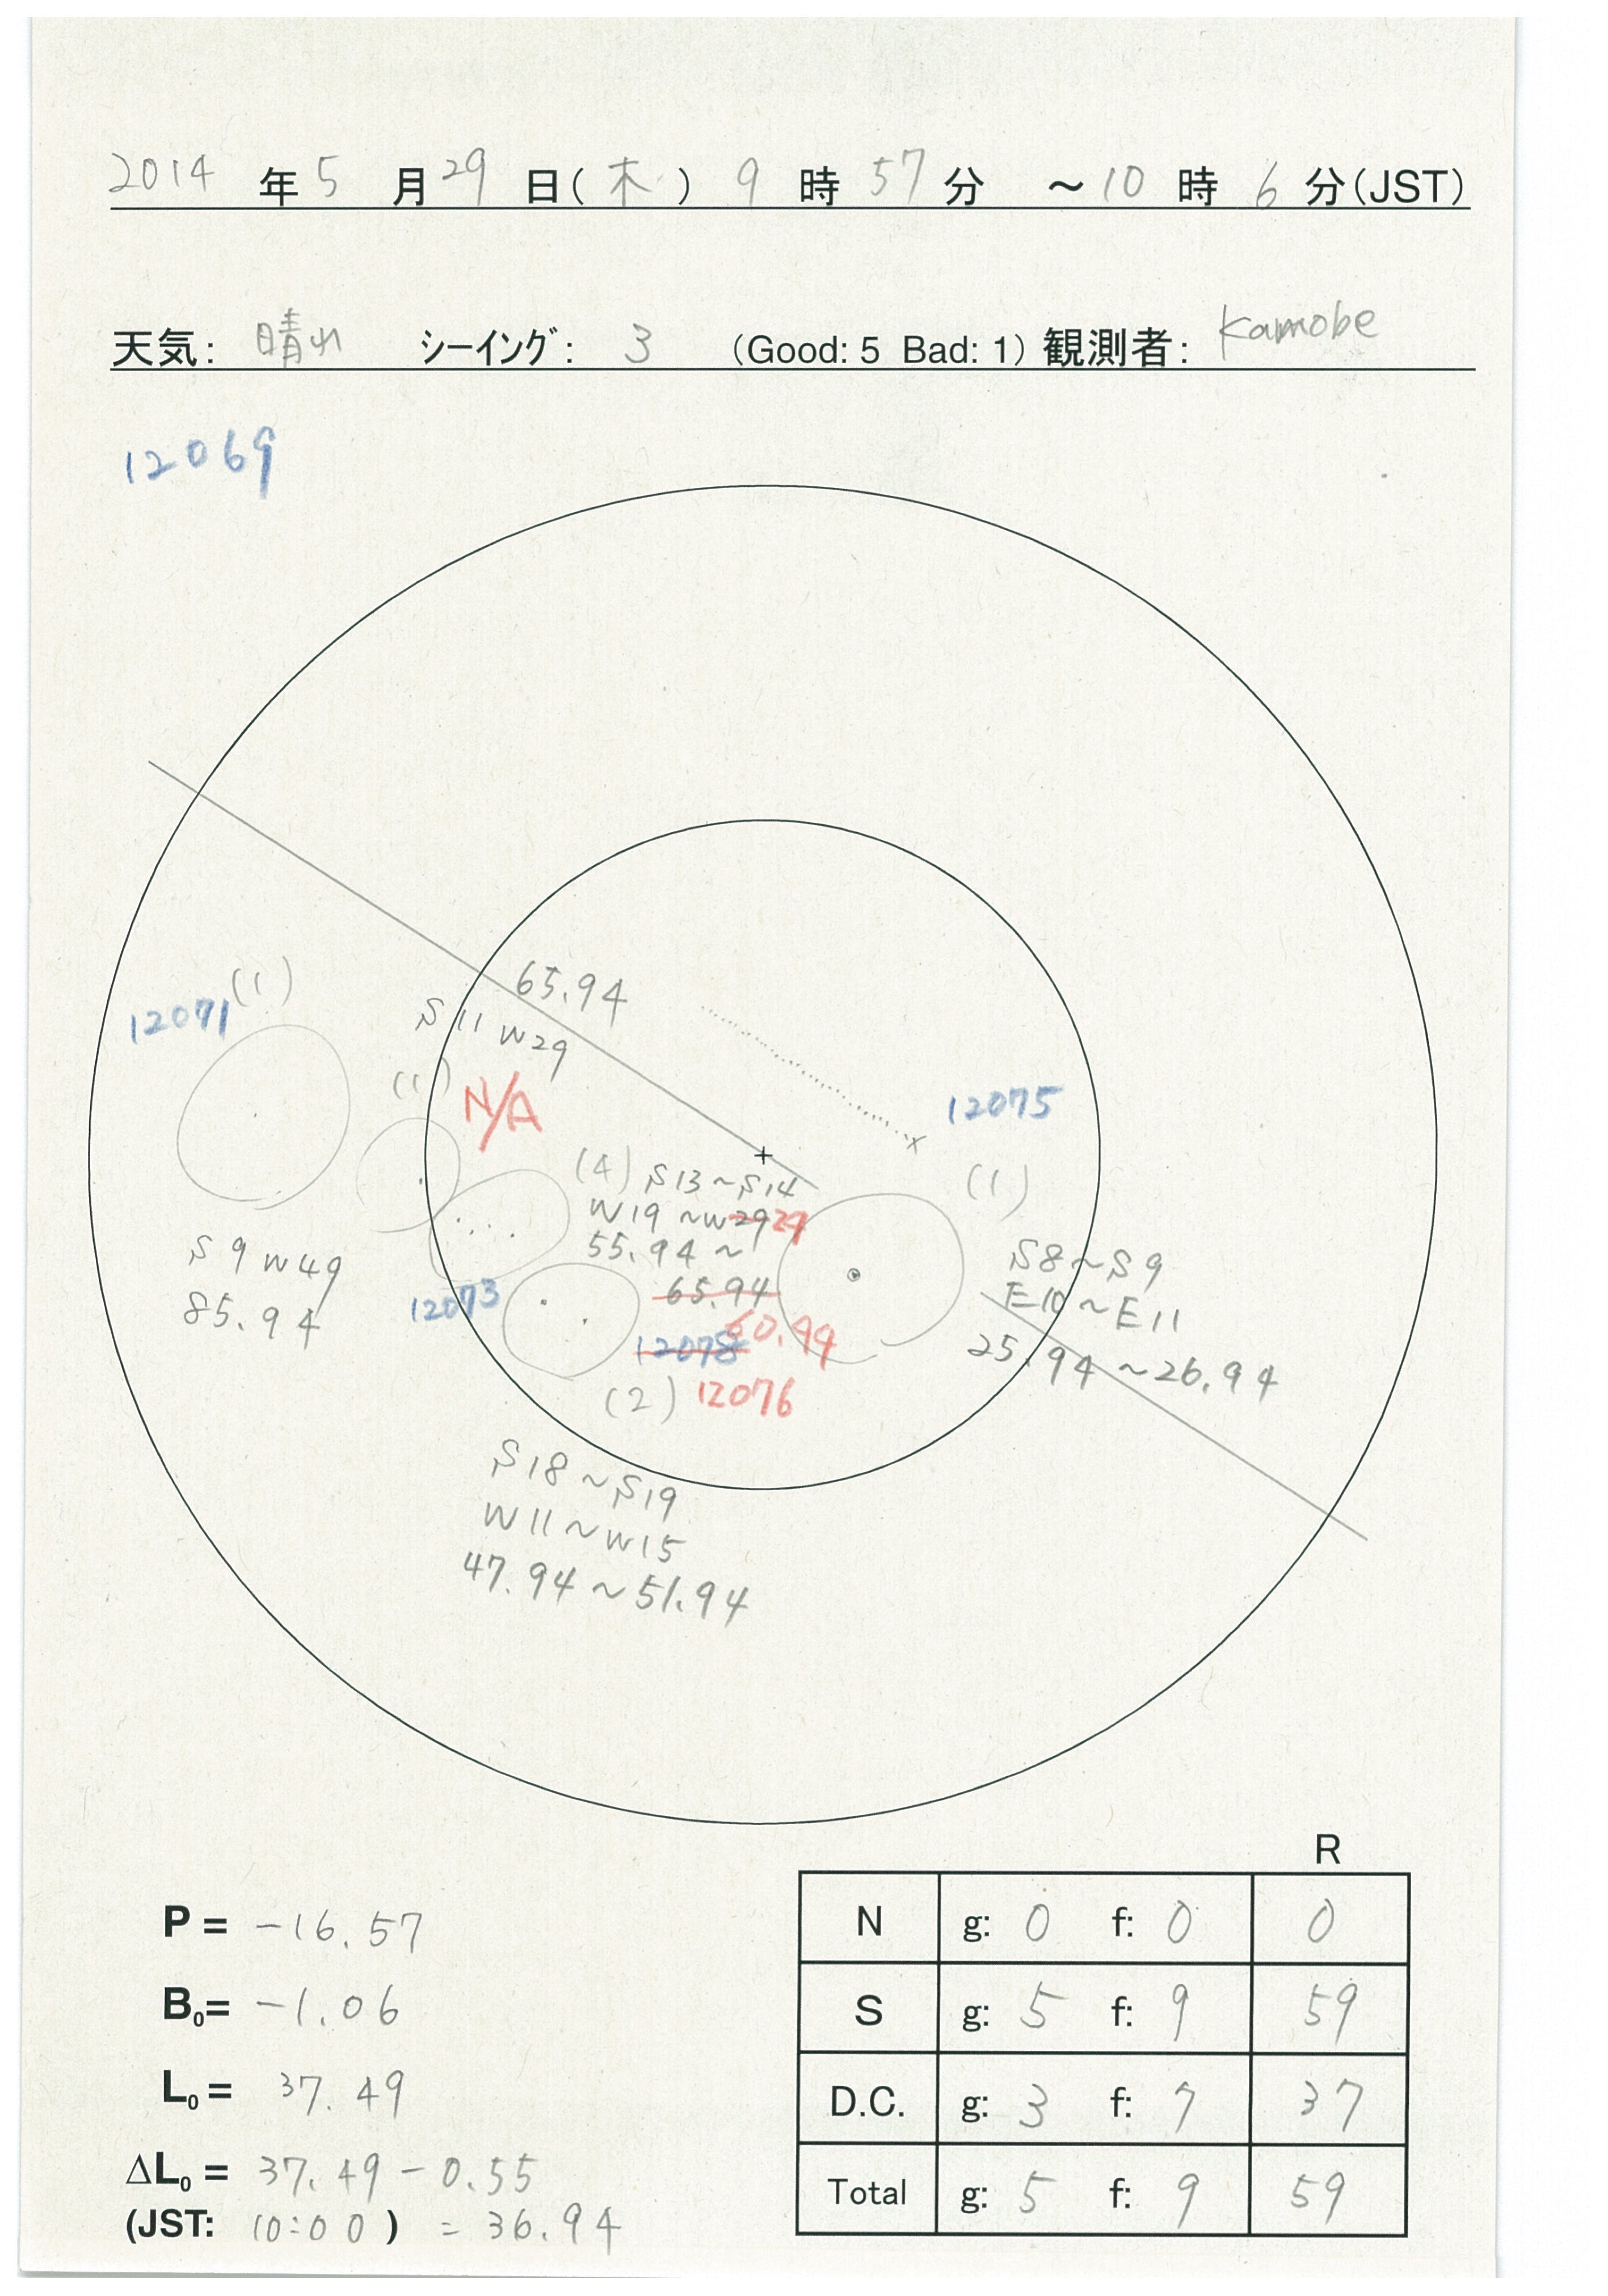 2014 年 5 月 29 日(木) 9 時 57 分 ～10 時 6 分(JST)
天気: 晴れ シーイング: 3 (Good: 5 Bad: 1) 観測者: Kamobe
12069
65.94
S11 W29
(1)
12071
(1)
N/A
12075
(1)
(4) S13～S14
W19～W29 24
55.94～
65.94
60.94
S9 W49
85.94
12073
S8～S9
E10～E11
25.94～26.94
12078
(2) 12076
S18～S19
W11～W15
47.94～51.94
R
P = -16.57
N g: 0 f: 0 0
B₀= -1.06
S g: 5 f: 9 59
L₀= 37.49
D.C. g: 3 f: 7 37
ΔL₀= 37.49-0.55
(JST: 10:00) = 36.94
Total g: 5 f: 9 59